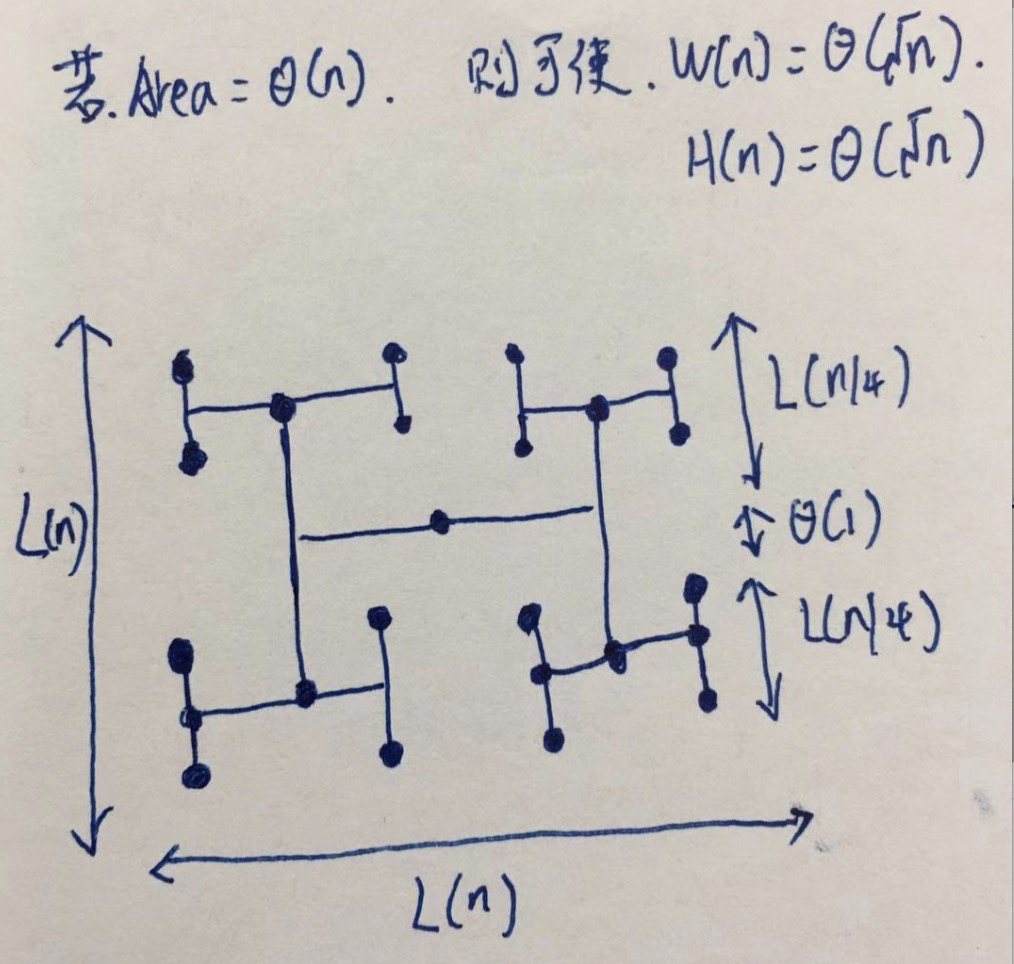 若. Area = Θ(n). 则可使. W(n) = Θ(√n).
H(n) = Θ(√n)
L(n/4)
L(n)
Θ(1)
L(n/4)
L(n)